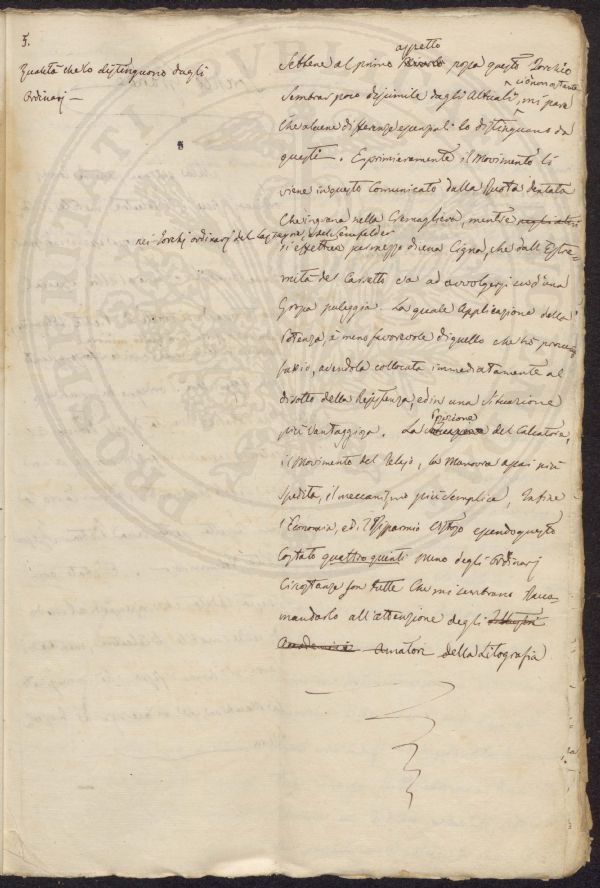 5.
Qualità che lo distinguono dagli
Ordinarj —
aspetto
Sebbene al primo possa questo Torchio
ciònonostante
Sembrar poco dissimile dagli Attuali, mi pare
che alcune differenze essenziali lo distinguano da
questi. E primieramente il Movimento li
viene in questo Comunicato dalla Ruota dentata
che ingrana nella Cremagliera, mentre negli altri
nei Torchj ordinarj del e del Senefelder
si effettua per mezzo di una Cigna, che dall'Estre-
mità del Carretto va ad avvolgersi ad una
Grossa puleggia. La quale Applicazione della
Potenza, è meno favorevole di quello che hò
avendola collocata immediatamente al
disotto della Resistenza, ed in una Situazione
più vantaggiosa. La
Posizione
del Calcatore,
il Movimento del Telajo, la Manovra assai più
spedita, il meccanismo più semplice, Infine
l'Economia, ed il Risparmio essendo questo
Costato quattro quinti meno degli Ordinarj
Circostanze son tutte Che mi sembrano Racco-
mandarlo all'attenzione degli Illustri
Accademici Amatori della Litografia